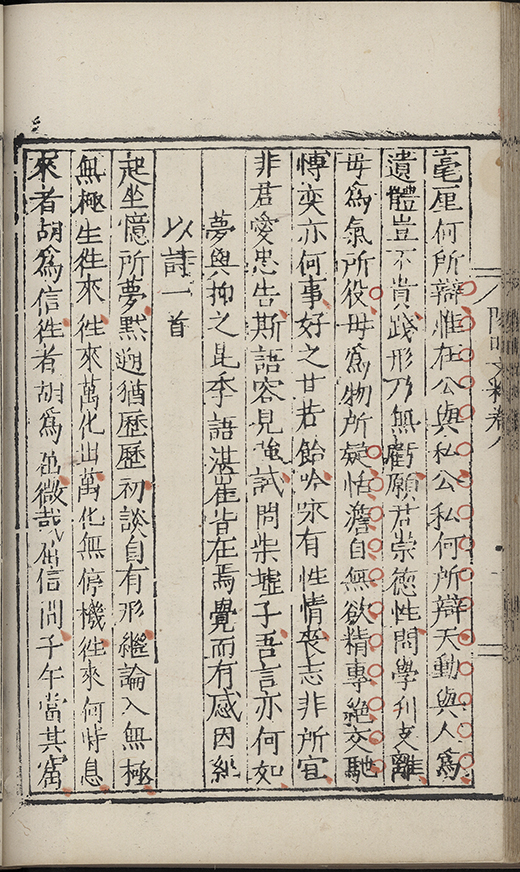 毫厘何所辯惟在公與私公私何所辯天動與人爲
遺體豈不肯踐形乃無虧願君崇德性問學刋支離
毋爲氣所役毋爲物所疑恬澹自無欲精專絕交馳
慱奕亦何事好之甘若飴吟咏有性情喪志非所宜
非君愛忠告斯語容見嗤試問柴墟子吾言亦何如
夢與抑之昆季語湛崔皆在焉覺而有感因紀
以詩一首
起坐憶所夢黙遡猶歷歷初談自有形繼論入無極
無極生徃來徃來萬化出萬化無停機徃來何時息
來者胡爲信徃者胡爲屈微哉屈信間子午當其窟